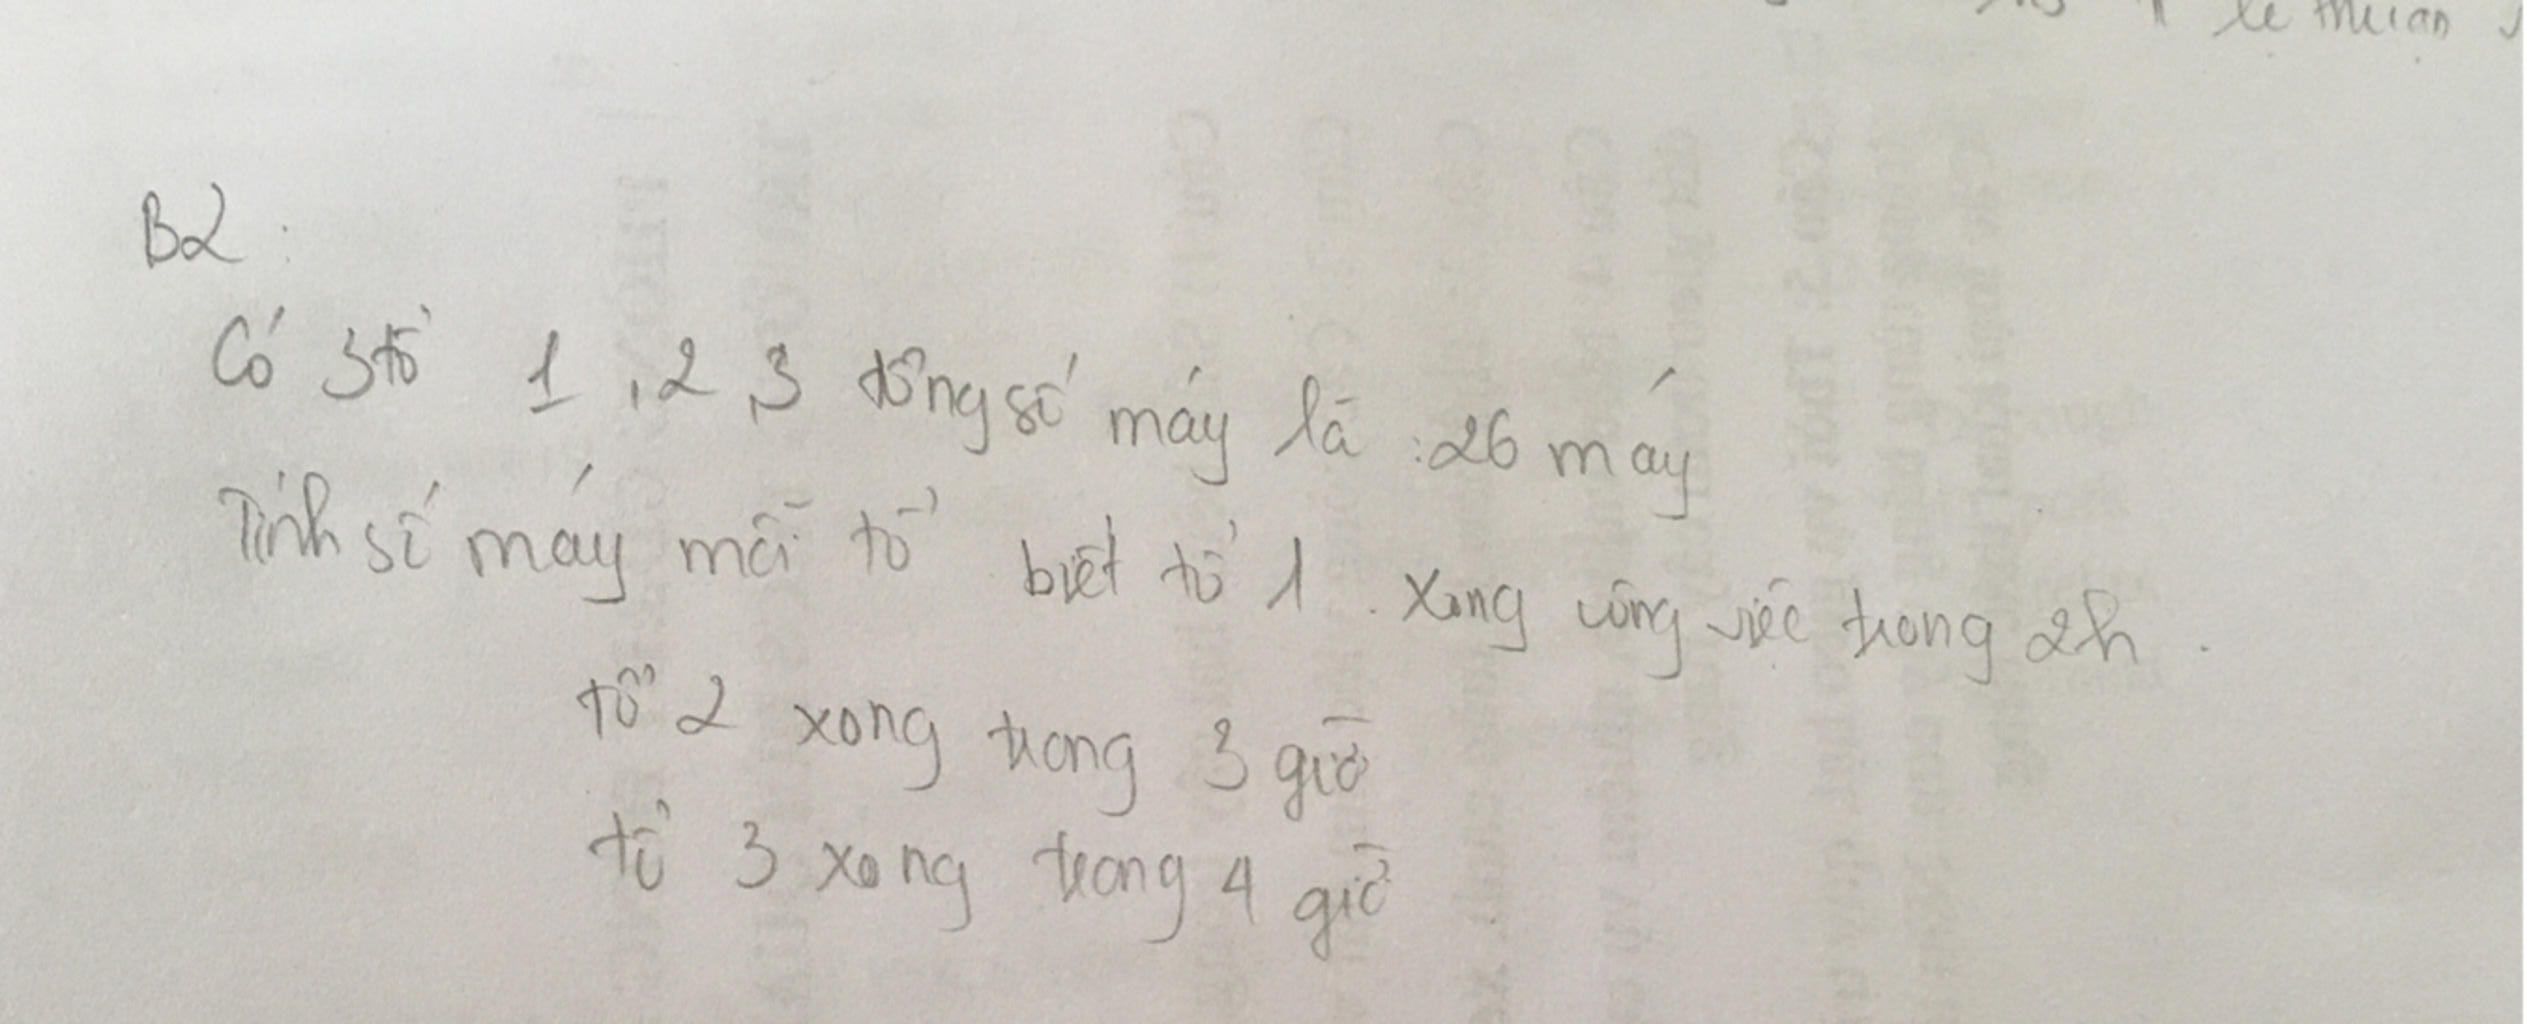 lệ thuận
B2:
Có 3 tổ 1, 2, 3 tổng số máy là : 26 máy
Tính số máy mỗi tổ biết tổ 1. xong công việc trong 2h.
tổ 2 xong trong 3 giờ
tổ 3 xong trong 4 giờ